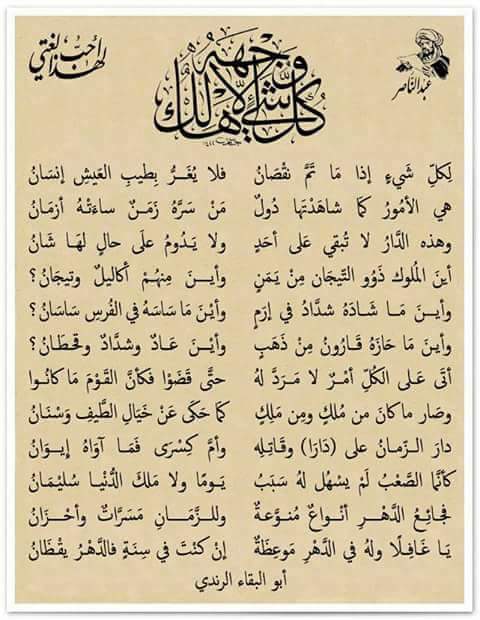 لهذا أحب لغتي
كل شيء هالك إلا وجهه
عبد الناصر
لِكلِّ شَيءٍ إذا مَا تَمَّ نقْصَانُ فلا يُغَرُّ بِطيبِ العَيشِ إنسَانُ
هي الأمُورُ كمَا شاهَدْتَها دُولٌ مَنْ سَرَّه زَمَنٌ ساءَتْهُ أزمَانُ
وهذه الدَّارُ لا تُبقي عَلى أحَدٍ ولا يَدُومُ علَى حالٍ لهَا شَانُ
أينَ المُلوك ذَوُو التّيجَان مِنْ يَمَنٍ وأيـنَ مِنهُمْ أكاليلٌ وتيجَانُ؟
وأيـنَ مَـا شَـادَهُ شدَّادُ في إرَمٍ وأيْنَ مَا سَاسَهُ في الفُرسِ سَاسَانُ؟
وأيـنَ مَا حَازَهُ قَارُونُ مِنْ ذَهَبٍ وأيْنَ عَـادٌ وشدَّادٌ وقحطَانُ؟
أتَى عَـلى الكُلِّ أمْـرٌ لا مَـرَدَّ لهُ حتَّى قَضَوْا فكأنَّ القَوْمَ مَا كانُـوا
وصَار ماكانَ من مُلكٍ ومِن مَلِكٍ كمَا حَكَى عَنْ خَيَالِ الطَّيفِ وَسْنَانُ
دارَ الـزَّمانُ على (دَارَا) وقَاتِلِه وأمَّ كِسْرَى فَمَا آوَاهُ إيـوَانُ
كأنَّمَا الصَّعْبُ لَمْ يَسْهُل لهُ سَبَبُ يَـومًا ولا مَلَكَ الدُّنْيا سُليْمَـانُ
فجائِعُ الدَّهْـرِ أنْـواعٌ منُـوَّعـةٌ وللـزَّمَـانِ مَسَرَّاتٌ وأحْـزَانُ
يَـا غَافِـلًا ولهُ في الدَّهْرِ مَوعِظَةٌ إنْ كنْتَ في سِنَةٍ فالدَّهْرُ يقْظَانُ
أبو البقاء الرندي